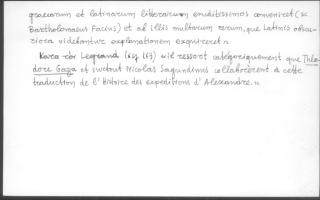 graecarum et latinarum litterarum eruditissimos conveniret (sc
Bartholomaeum Facius) et ab illis multarum rerum, que Latinis obscu-
riora videbantur explanationem exquireret».
Κατα τον Legrand (σελ. 167) «il ressort catégoriquement que Théo-
dore Gaza et surtout Nicolas Sagundinus collaborèrent à cette
traduction de l'Histoire des expeditions d'Alexandre.»